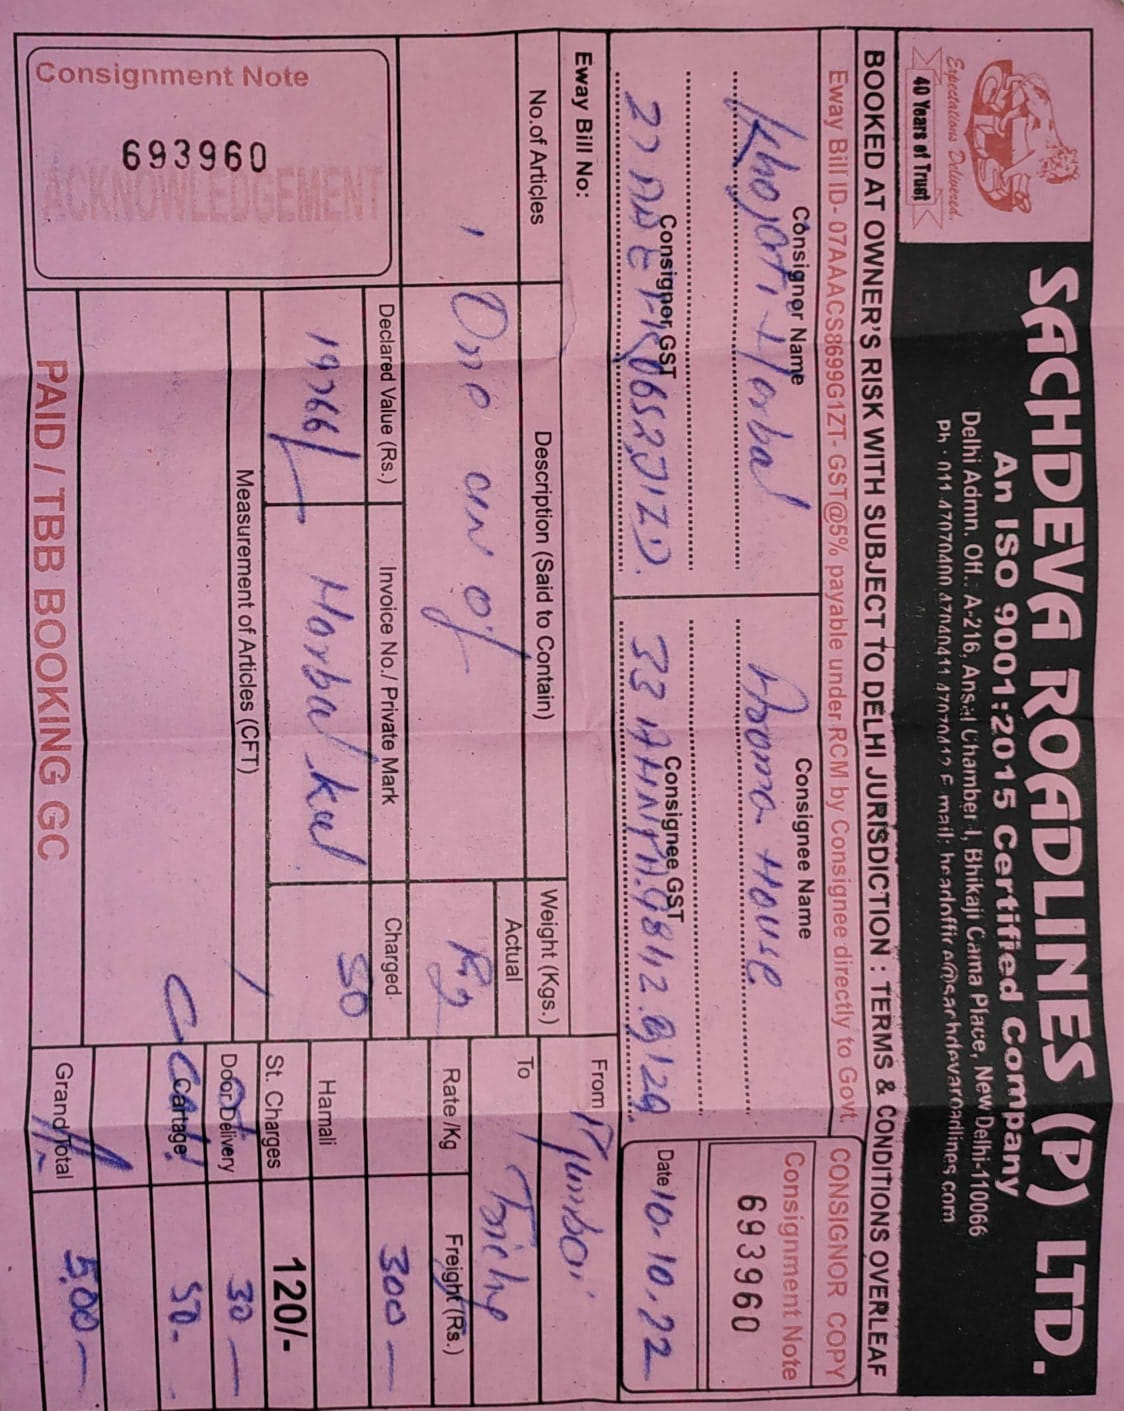 Expectations Delivered.
40 Years of Trust
SACHDEVA ROADLINES (P) LTD.
An ISO 9001:2015 Certified Company
Delhi Admn. Off.: A-216, Ansal Chamber-I, Bhikaji Cama Place, New Delhi-110066
Ph.: 011-47070400 47040411 47070412 E-mail: headoffice@sachdevaroadlines.com
BOOKED AT OWNER'S RISK WITH SUBJECT TO DELHI JURISDICTION : TERMS & CONDITIONS OVERLEAF
Eway Bill ID- 07AAACS8699G1ZT- GST@5% payable under RCM by Consignee directly to Govt.
CONSIGNOR COPY
Consignor Name
Khojati Herbal
Consignee Name
Aroma House
Consignment Note
693960
Consignor GST
Consignee GST
Date 10.10.22
Eway Bill No:
From Mumbai
No. of Articles
Description (Said to Contain)
Weight (Kgs.)
Actual
To Trichy
One
Rate /Kg
Freight (Rs.)
300
Declared Value (Rs.)
Invoice No./ Private Mark
Charged
50
Hamali
19766/
Herbal
St. Charges
120/-
Measurement of Articles (CFT)
Door Delivery
30
Cartage
50-
Grand Total
500
Consignment Note
693960
ACKNOWLEDGEMENT
PAID / TBB BOOKING GC